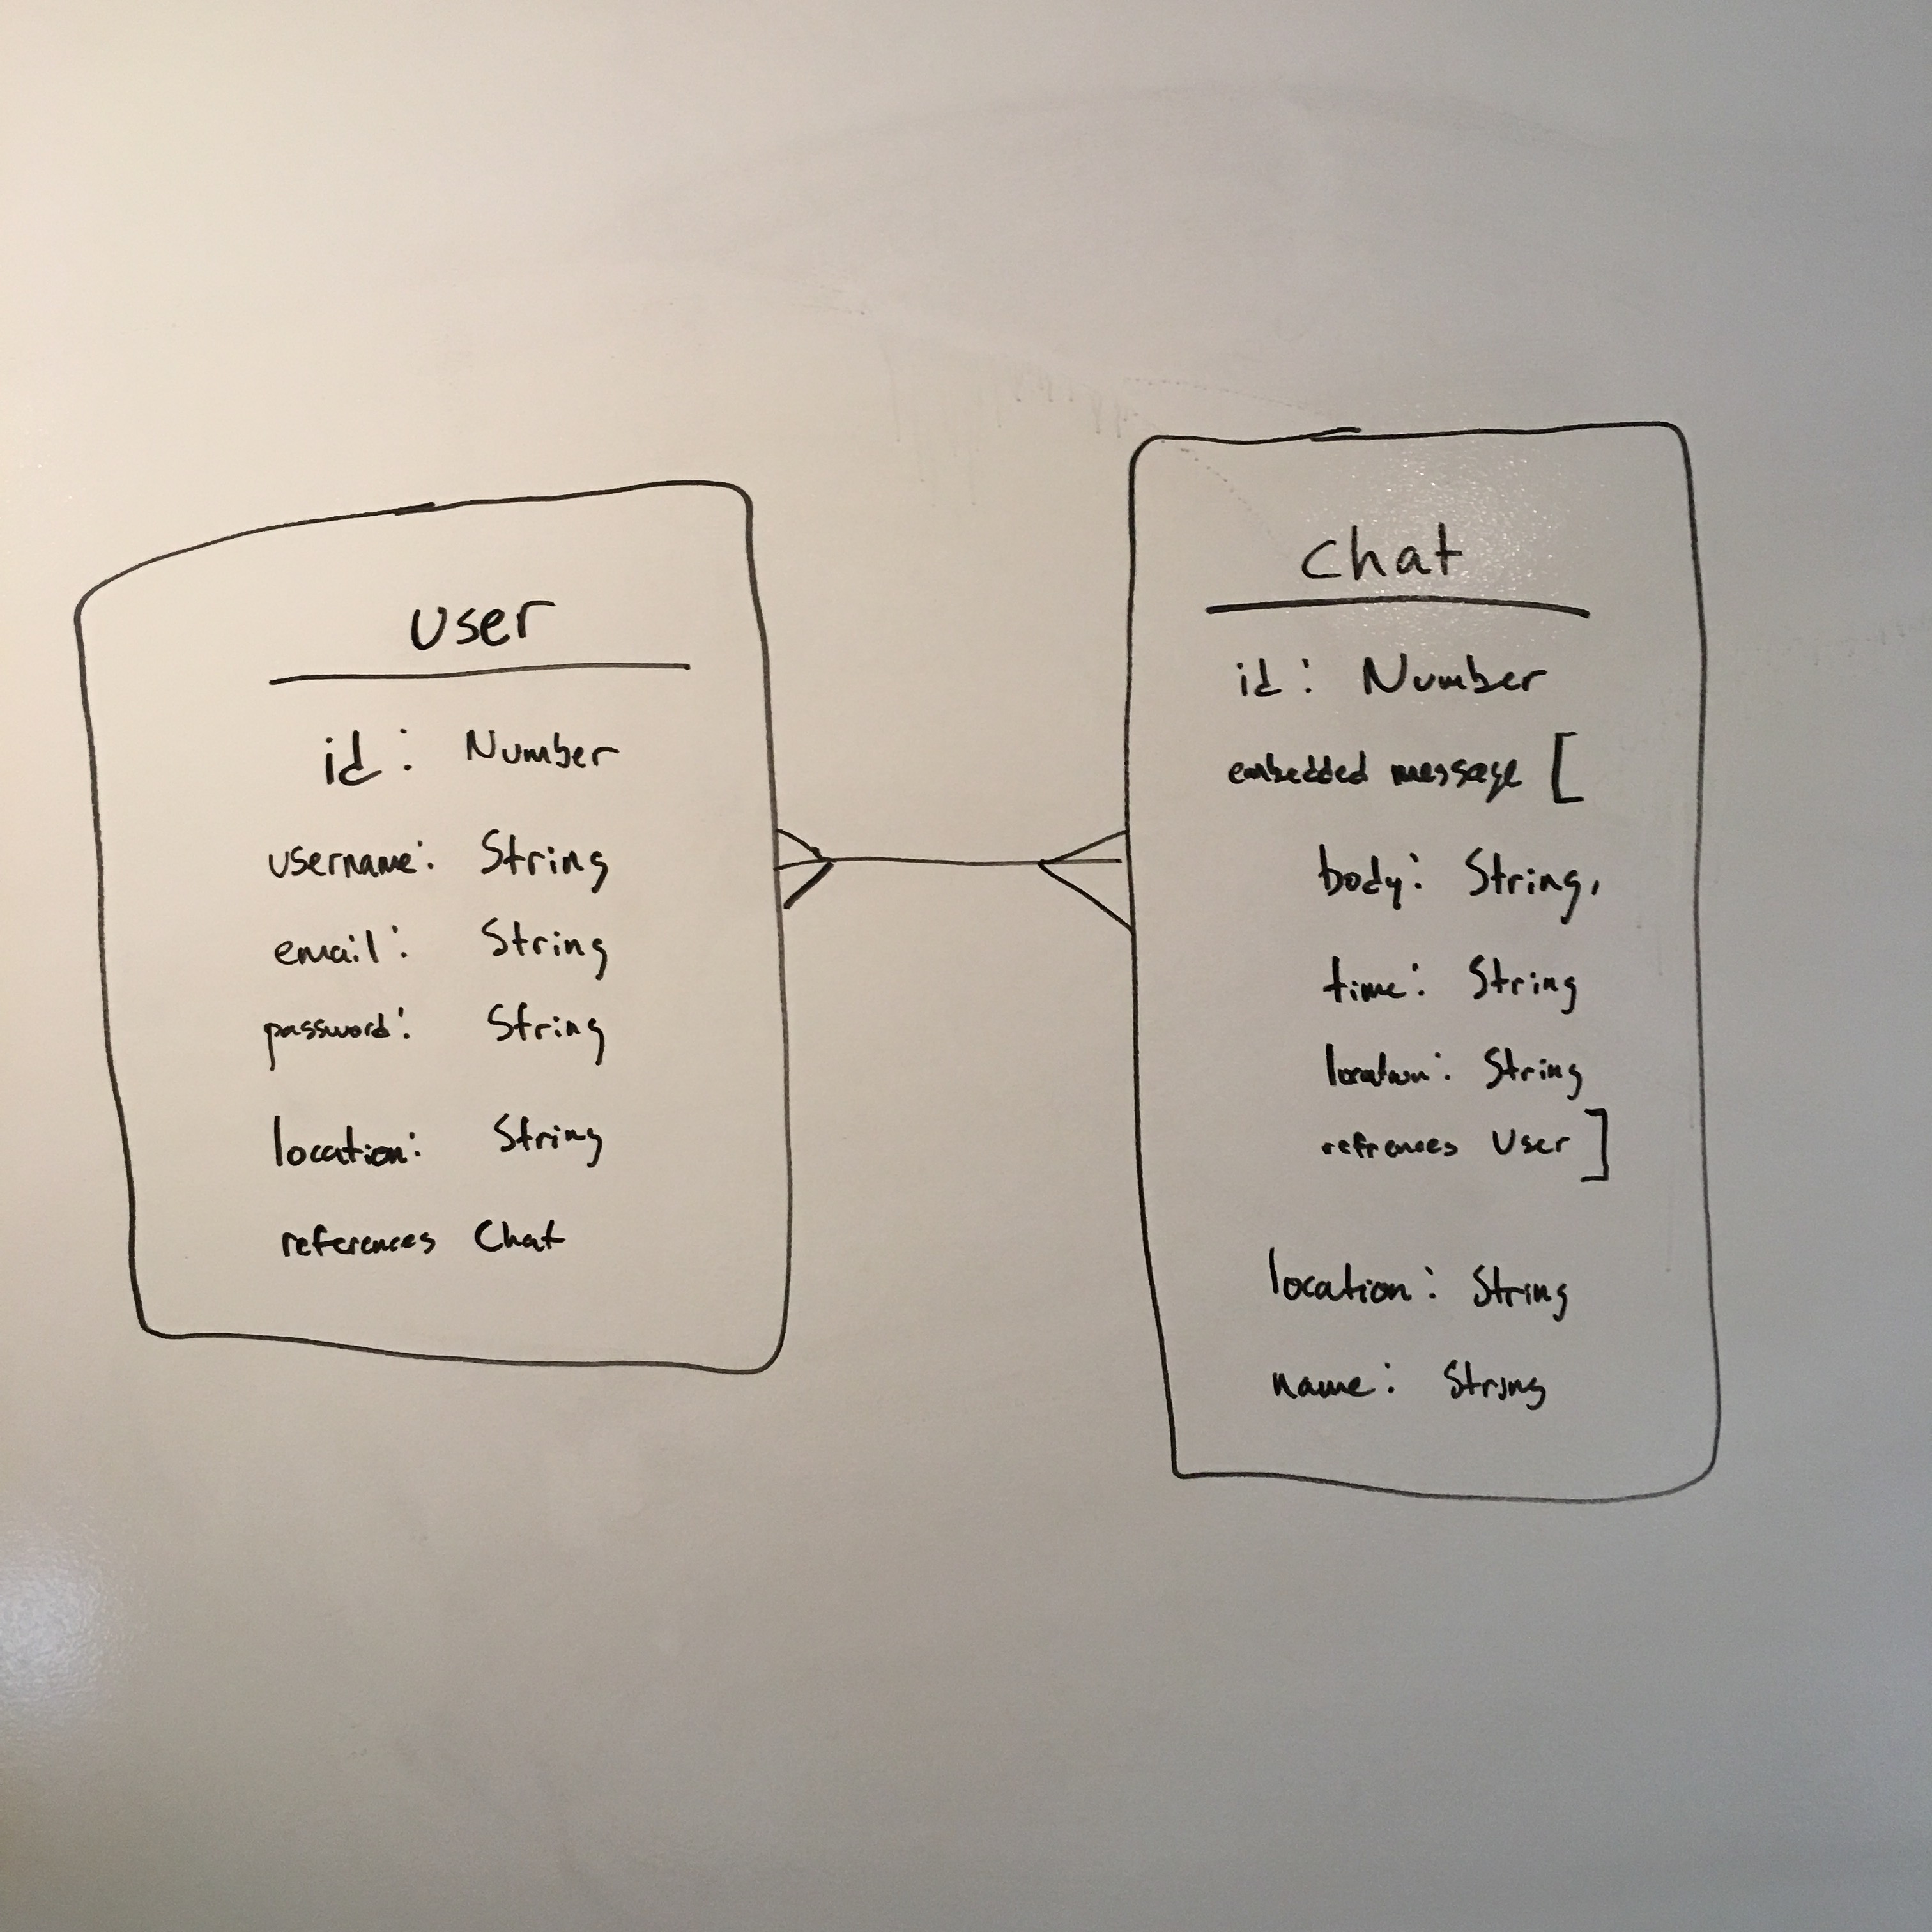 User
id: Number
username: String
email: String
password: String
location: String
references Chat
Chat
id: Number
embedded message [
body: String,
time: String
location: String
refrences User ]
location: String
name: String